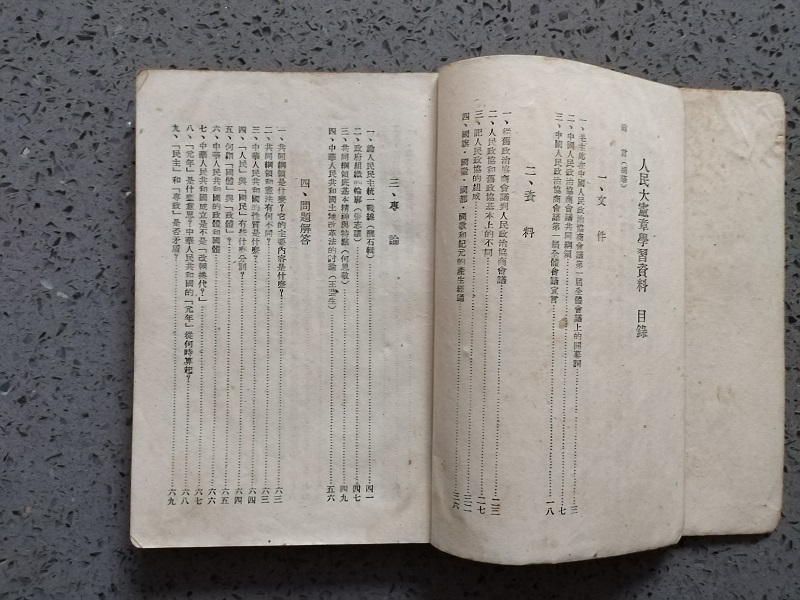 人民大憲章學習資料 目錄
一、文件
一、毛主席在中國人民政治協商會議第一屆全體會議上的開幕詞……三
二、中國人民政治協商會議共同綱領……七
三、中國人民政治協商會議第一屆全體會議宣言……一八
二、資料
一、從舊政治協商會議到人民政治協商會議……二三
二、人民政協和舊政協基本上的不同……二七
三、記人民政協的組成……三二
四、國旗・國徽・國都・國歌和紀元的產生經過……三六
三、專論
一、論人民民主統一戰線……四一
二、政府組織的輪廓……四七
三、共同綱領底基本精神與特點（何思敬）……四九
四、中華人民共和國土地改革法的討論……五六
四、問題解答
一、共同綱領是什麼？它的主要內容是什麼？……六三
二、共同綱領和憲法有何不同？……六三
三、中華人民共和國的性質是什麼？……六四
四、「人民」與「國民」有些什麼分別？……六四
五、何謂「國體」與「政體」？……六五
六、中華人民共和國的政體和國體……六六
七、中華人民共和國成立是不是「改朝換代？」……六七
八、「元年」是什麼意思？中華人民共和國的「元年」從何時算起？……六八
九、「民主」和「專政」是否矛盾？……六九